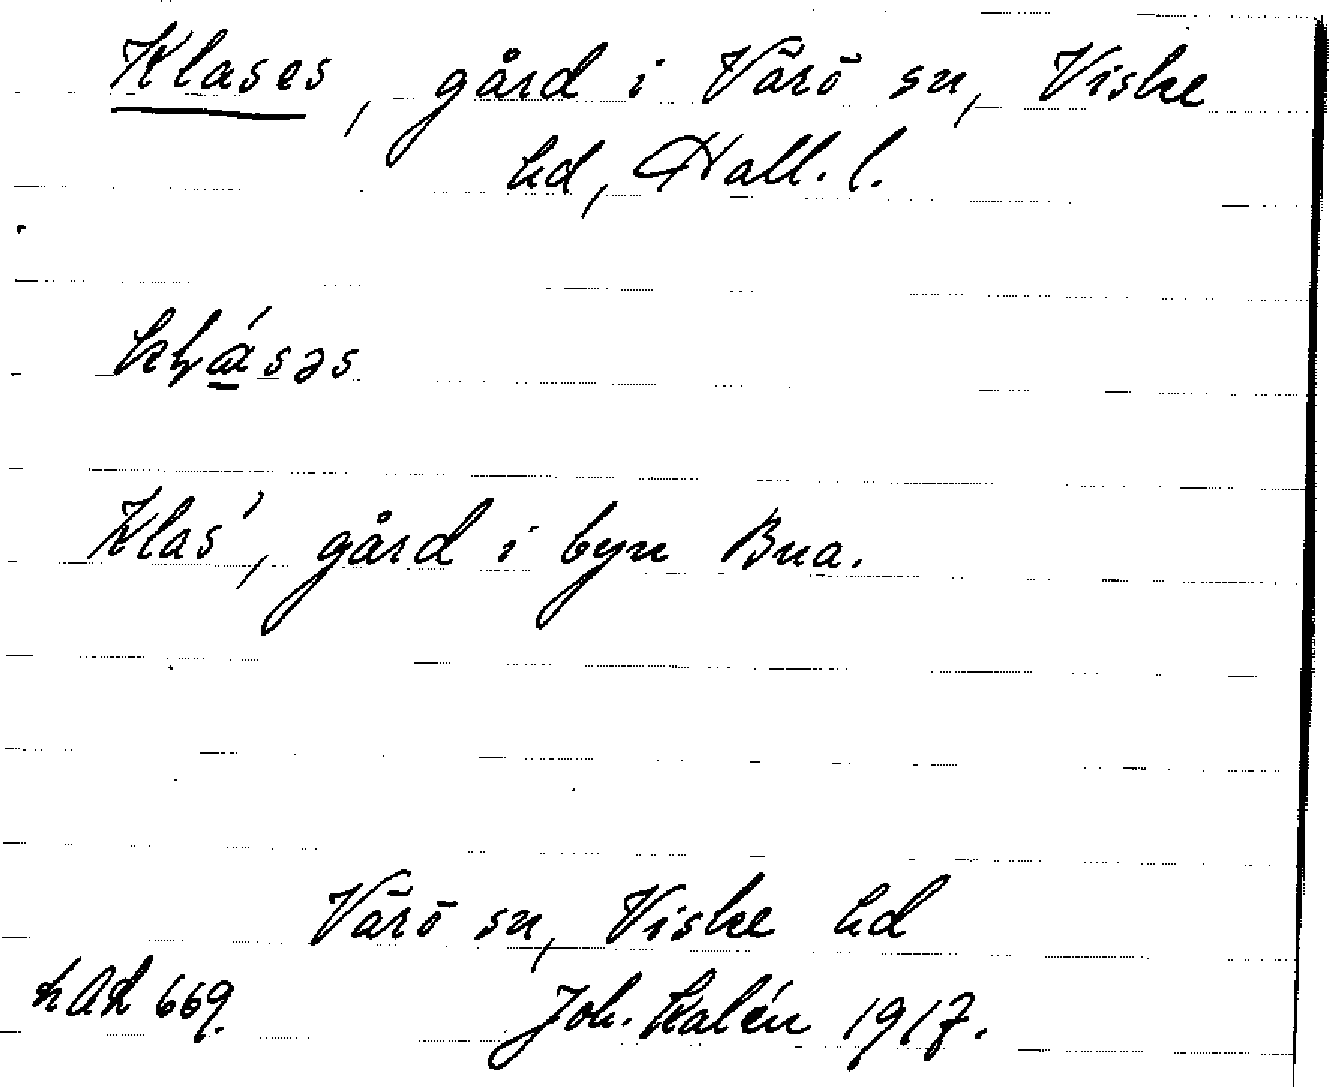 Klases, gård i Värö sn, Viske
hd, Hall. l.
Klas', gård i byn Bua.
Värö sn, Viske hd
669. Joh. Kalén 1917.